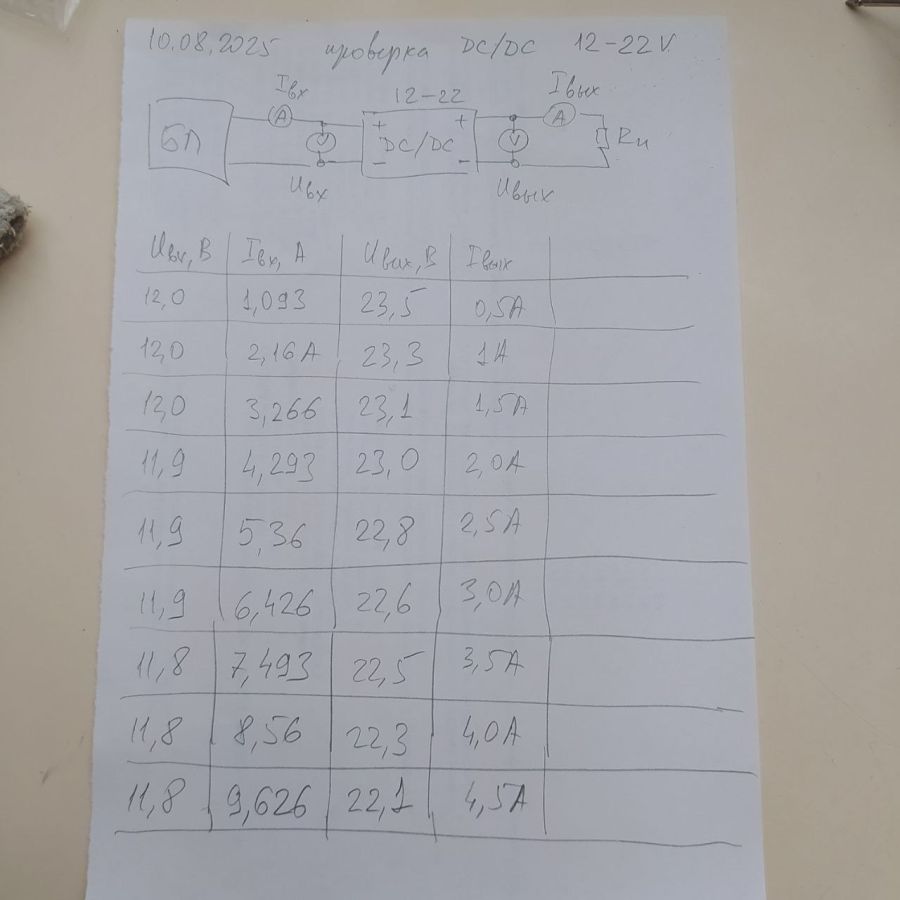 10.08.2025 проверка DC/DC 12-22V
Iвх 12-22 Iвых
БП A V + - DC/DC + - V A Rн
Uвх Uвых
Uвх, В Iвх, А Uвых, В Iвых
12,0 1,093 23,5 0,5А
12,0 2,16А 23,3 1А
12,0 3,266 23,1 1,5А
11,9 4,293 23,0 2,0А
11,9 5,36 22,8 2,5А
11,9 6,426 22,6 3,0А
11,8 7,493 22,5 3,5А
11,8 8,56 22,3 4,0А
11,8 9,626 22,1 4,5А